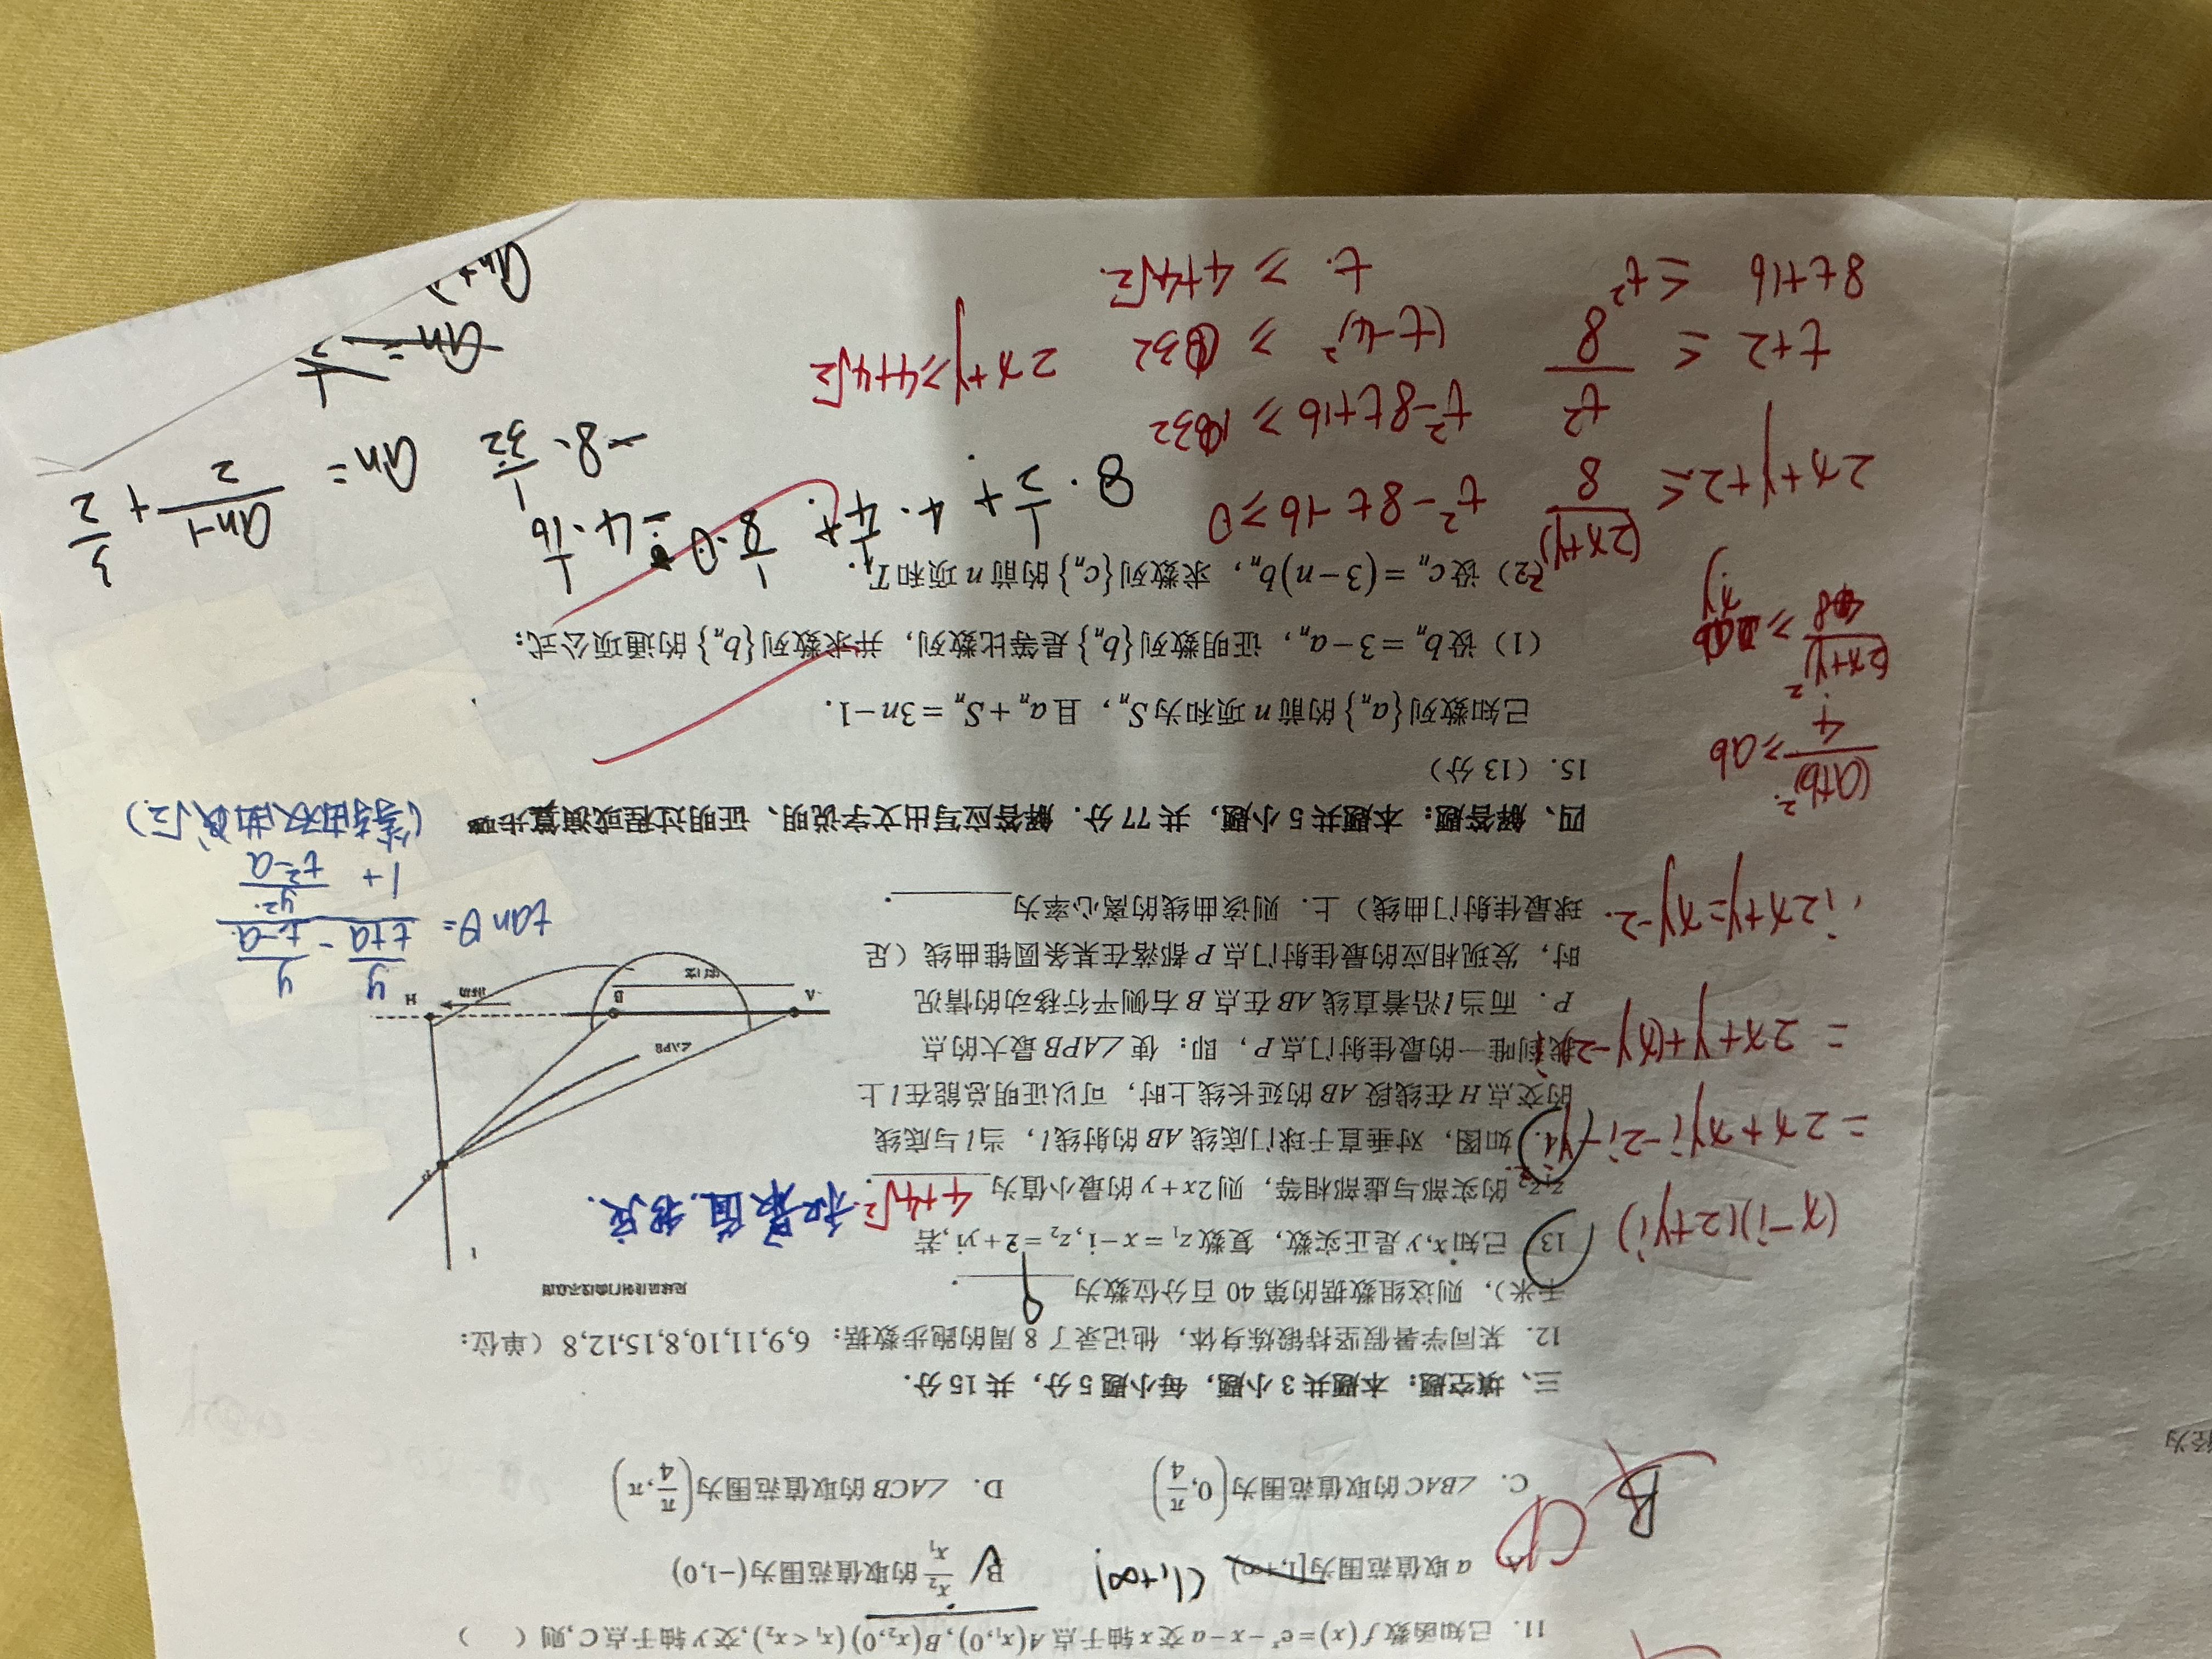 11. 已知函数 f(x)=eˣ-x-a 交 x 轴于点 A(x₁,0), B(x₂,0)(x₁<x₂), 交 y 轴于点 C, 则 ( )
a 取值范围为[1,+∞) (1,+∞)
B. x₂/x₁ 的取值范围为(-1,0)
CD
B
C. ∠BAC 的取值范围为(0, π/4)
D. ∠ACB 的取值范围为(π/4, π)
三、填空题：本题共 3 小题，每小题 5 分，共 15 分.
12. 某同学暑假坚持锻炼身体，他记录了 8 周的跑步数据：6,9,11,10,8,15,12,8（单位：
千米），则这组数据的第 40 百分位数为 9 .
足球最佳射门曲线示意图
13. 已知 x,y 是正实数，复数 z₁=x-i, z₂=2+yi, 若
z₁z₂ 的实部与虚部相等，则 2x+y 的最小值为 4+4√2 .
和最值.
(x-i)(2+yi)
=2x+xyi-2i+y
=2x+y+(xy-2)i
∴2x+y=xy-2.
14. 如图，对垂直于球门底线 AB 的射线 l，当 l 与底线
的交点 H 在线段 AB 的延长线上时，可以证明总能在 l 上
找到唯一的最佳射门点 P，即：使∠APB 最大的点
P．而当 l 沿着直线 AB 在点 B 右侧平行移动的情况
时，发现相应的最佳射门点 P 都落在某条圆锥曲线（足
球最佳射门曲线）上．则该曲线的离心率为 .
l
P
∠APB
A
B
H
tanθ= (y/(t+a) - y/(t-a)) / (1+ y²/(t²-a))
(等轴双曲线√2)
四、解答题：本题共 5 小题，共 77 分．解答应写出文字说明、证明过程或演算步骤
15.（13 分）
已知数列{aₙ}的前 n 项和为 Sₙ，且 aₙ+Sₙ=3n-1.
（1）设 bₙ=3-aₙ，证明数列{bₙ}是等比数列，并求数列{bₙ}的通项公式；
（2）设 cₙ=(3-n)bₙ，求数列{cₙ}的前 n 项和 Tₙ.
(a+b)²/4 ≥ab
(2x+y)²/8 ≥ xy
2x+y+2≤ (2x+y)²/8
t+2 ≤ t²/8
8t+16 ≤ t²
t²-8t-16≥0
t²-8t+16≥32
(t-4)² ≥ 32
t ≥ 4+4√2
2x+y≥4+4√2
8·1/2+4·1/4+1/8·0
-4·1/16
-8·1/32
aₙ= aₙ₋₁/2 + 3/2
aₙ= 1/2
aₙ₊